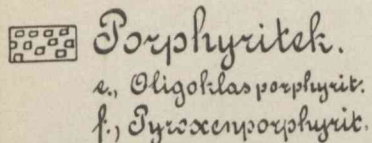 Porphyritek.
e., Oligoklasporphyrit.
f., Pyroxenporphyrit.